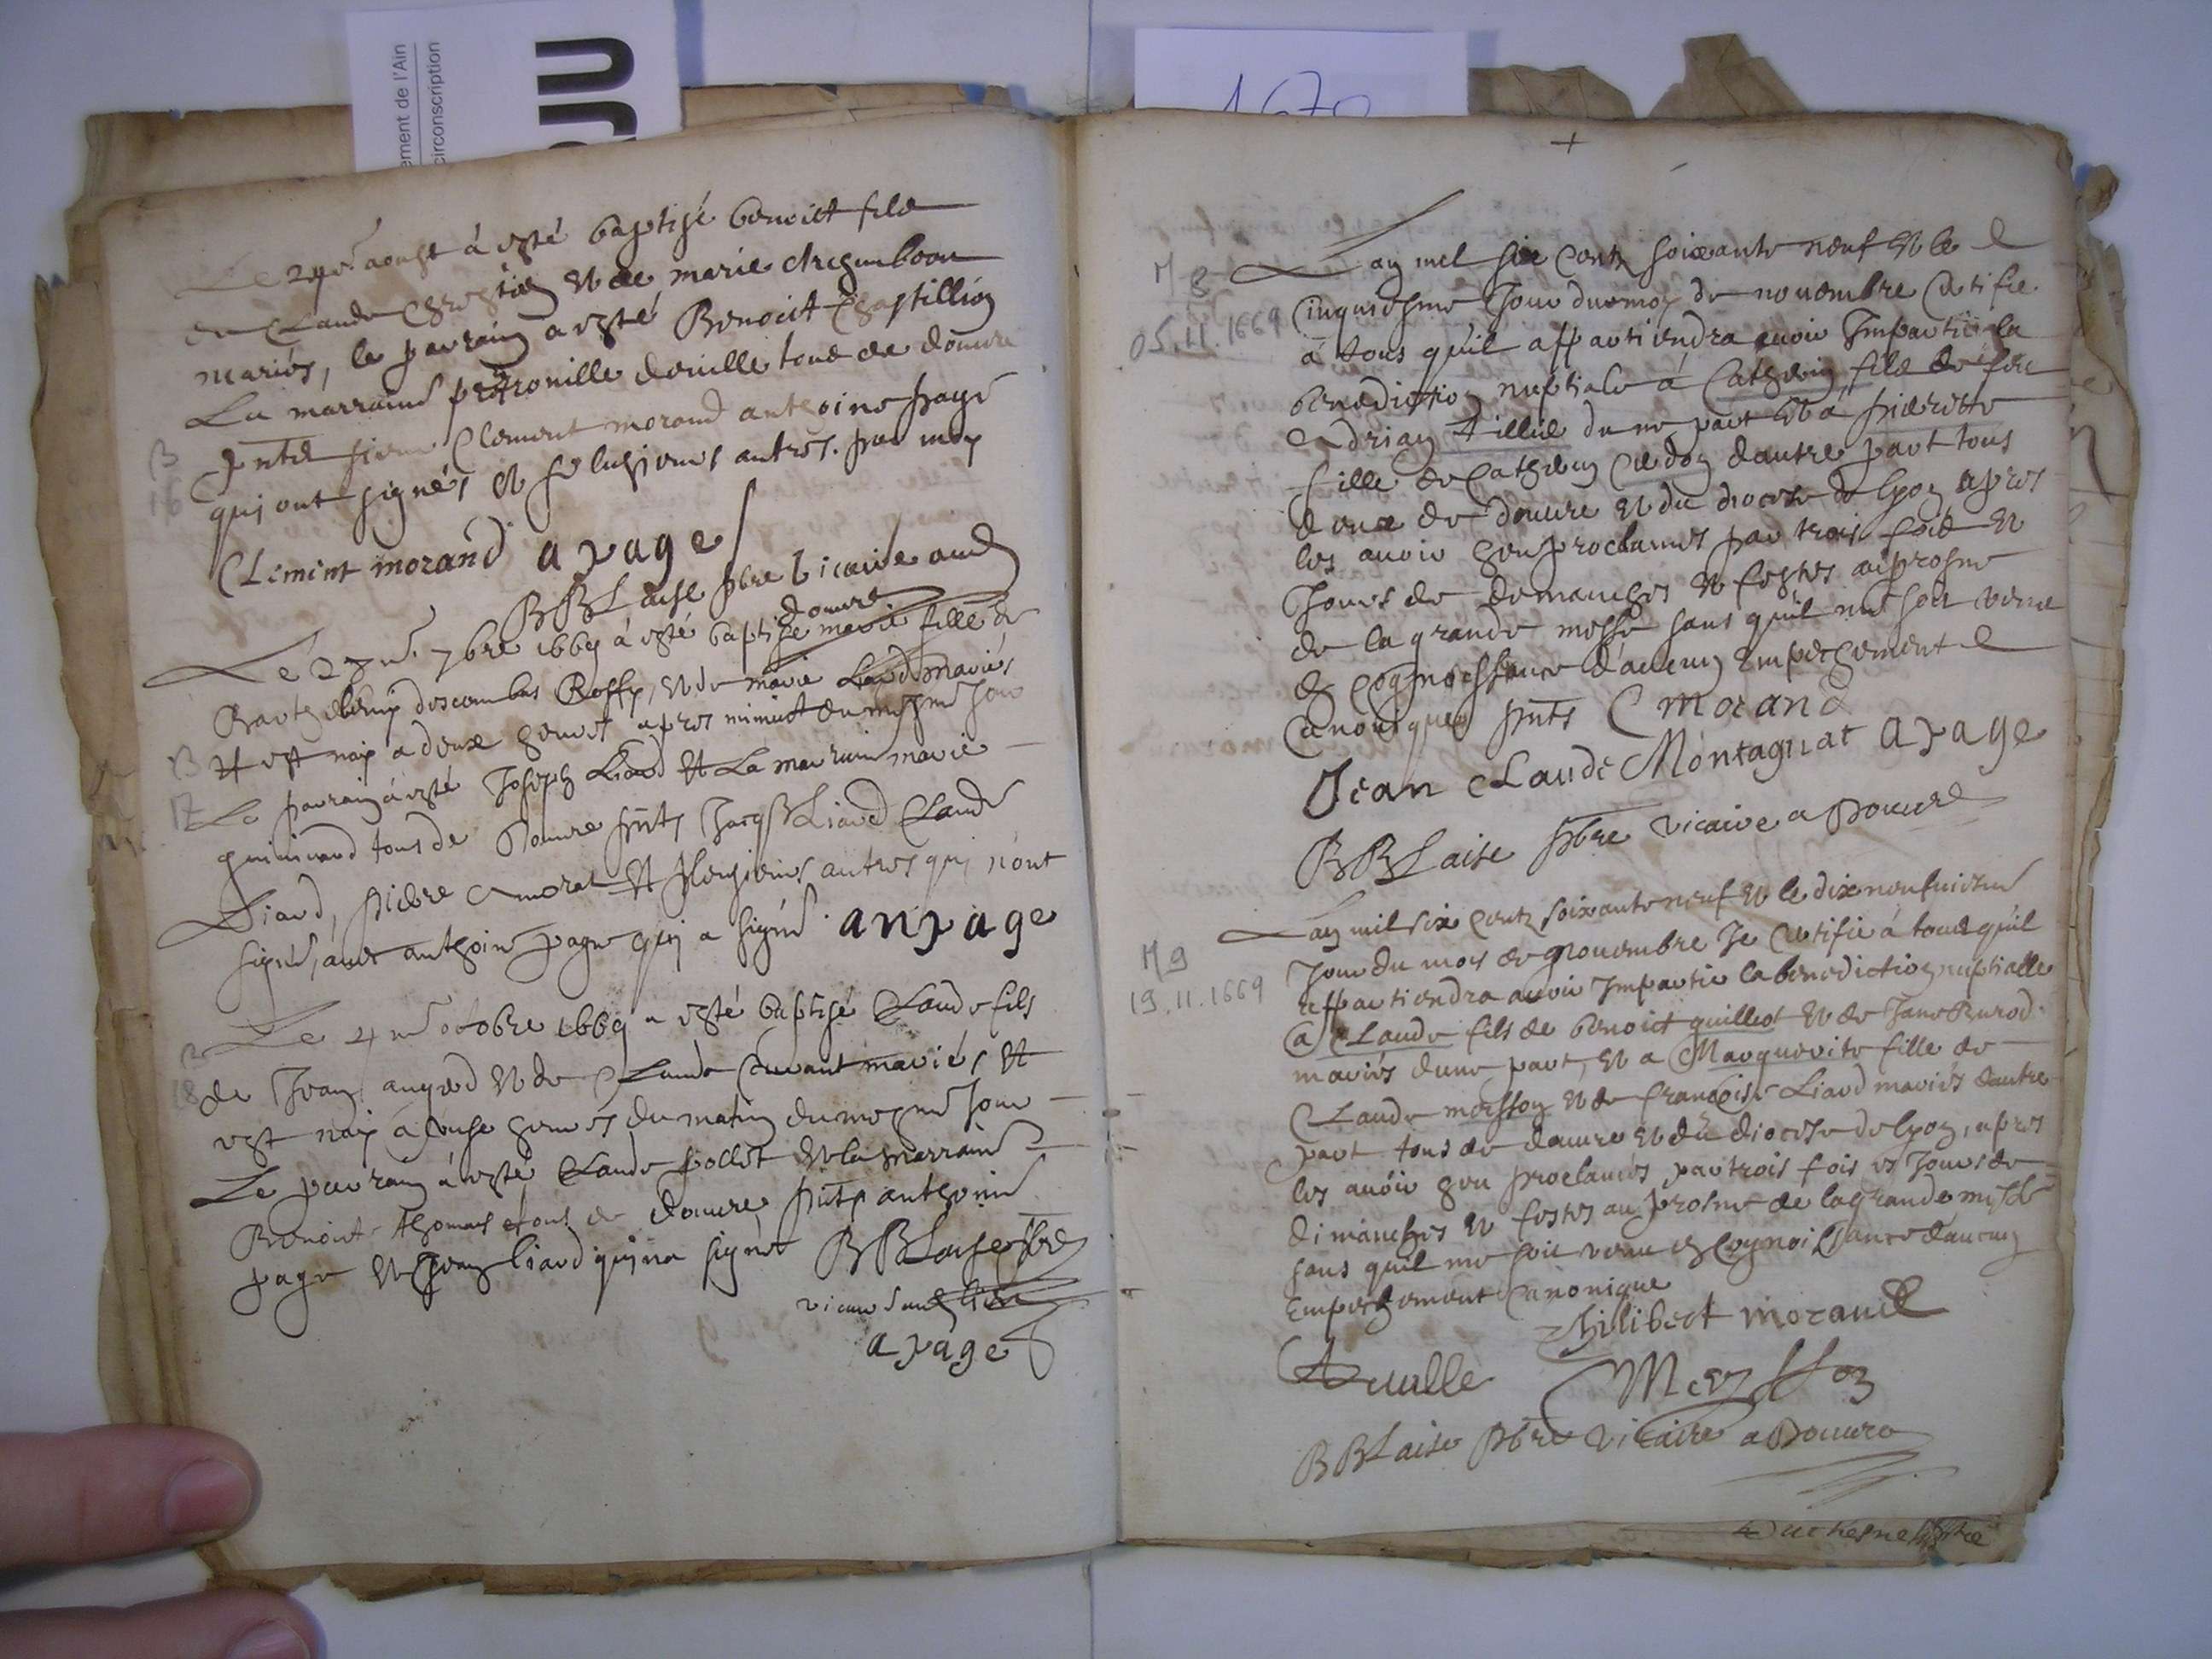 ement de l'Ain
circonscription
JU
1670
Le aoust à esté baptisé benoict filz
de Claude et de marie
mariés, le parrain a esté Benoict Chastillion
La marraine petronille deville tous de douvre
B
16
pntz sieur Clement morand anthoine page
qui ont signés et plusieurs autres. par moy
Clement morand a page
BBLaise pbre vicaire aud
douvre
Le 7bre 1669 à esté baptisé marie fille de
Barthelemy descombes Roffy, et de marie Liard mariés
B
17
et est nay a deux heures apres minuict du mesme jour
Le parrain à esté Joseph Liard et La marraine marie
guinivard tous de Douvre pntz Jacq Liard Claude
Liard, pierre morat et plusieurs autres qui n'ont
signé, avec anthoine page qui a signé. an page
B
18
Le 4me octobre 1669 a esté baptisé Claude fils
de Jean et de Claude mariés et
est nay à onse heures du matin du mesme jour
Le parrain à esté Claude pollet et la marraine
Benoite Thomas tous de douvre pntz anthoine
page et Jean liard qui na signé BBLaise pbre
vicaire aud
a page
+
M 8
05.11.1669
Lan mil six centz soixante neuf et le
cinquiesme Jour du moy de novembre certifie
à tous qu'il appartiendra avoir Impartie la
benediction nuptiale à Catherin filz de feu
Adrian Tillié dune part et à pierrette
fille de Catherin dautre part tous
deux de douvre et du diocese de lyon apres
les avoir heu proclamés par trois fois et
Jours de demanches et festes au prosne
de la grande messe sans qu'il me soit venu
en cognoissance d'aucun empeschement
canonique pntz C morand
Jean Claude Montagnat a page
BBLaise pbre vicaire a Douvre
M 9
19.11.1669
Lan mil six centz soixante neuf et le dix neufviesme
Jour du mois de novembre Je certifie à tous qu'il
appartiendra avoir Impartie la benediction nuptialle
a Claude fils de benoict guillot et de Jane Burod
mariés dune part, et a Marguerite fille de
Claude messon et de françoise Liard mariés dautre
part tous de douvre et du diocese de lyon, apres
les avoir heu proclamés par trois fois es Jours de
dimanches et festes au prosne de la grande messe
sans quil me soit venu en cognoissance daucun
Empeschement canonique
philibert morand
BBLaise pbre vicaire a Douvre